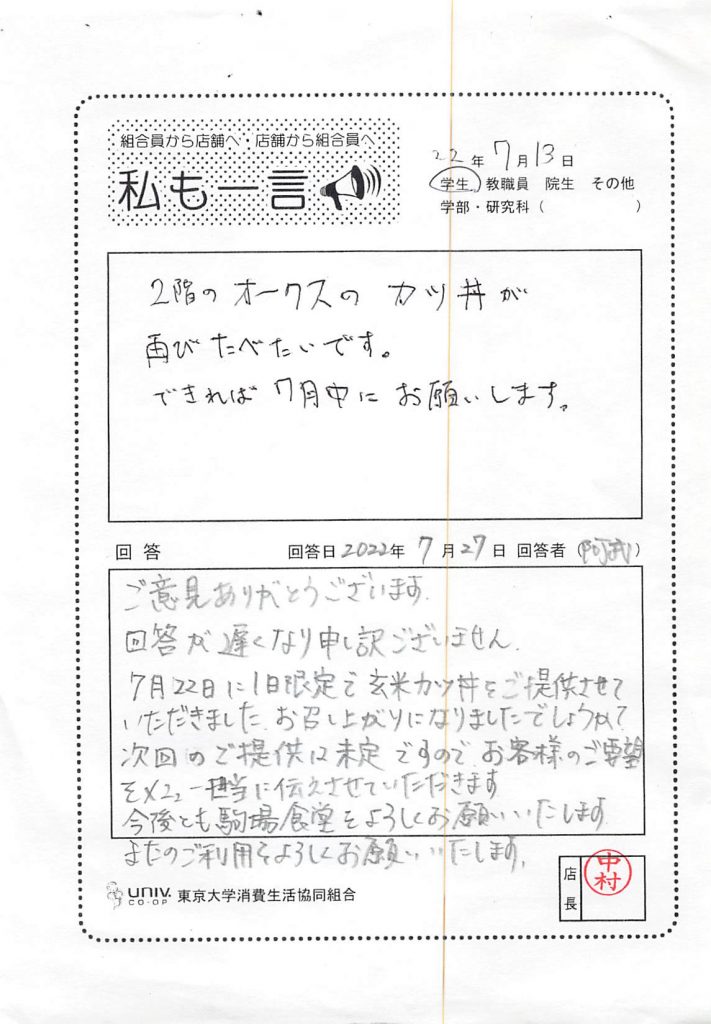 組合員から店舗へ・店舗から組合員へ
私も一言
22年7月13日
学生 教職員 院生 その他
学部・研究科( )
2階のオークスの カツ丼が
再び たべたいです。
できれば 7月中に お願いします。
回答 回答日2022年 7月27日 回答者(阿武)
ご意見ありがとうございます.
回答が遅くなり申し訳ございません.
7月22日に1日限定で玄米カツ丼をご提供させて
いただきました.お召し上がりになりましたでしょうか?
次回のご提供は未定ですので.お客様のご要望
をメニュー担当に伝えさせていただきます
今後とも駒場食堂をよろしくお願いいたします.
またのご利用をよろしくお願いいたします.
UNIV.
CO-OP
東京大学消費生活協同組合
店長
中村